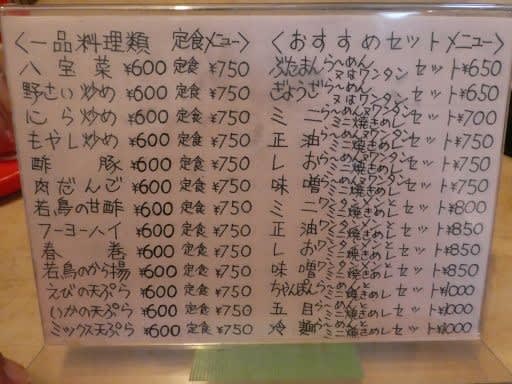 ＜一品料理類 定食メニュー＞
八宝菜 ¥600 定食 ¥750
野さい炒め ¥600 定食 ¥750
にら炒め ¥600 定食 ¥750
もやし炒め ¥600 定食 ¥750
酢豚 ¥600 定食 ¥750
肉だんご ¥600 定食 ¥750
若鳥の甘酢 ¥600 定食 ¥750
フーヨーハイ ¥600 定食 ¥750
春巻 ¥600 定食 ¥750
若鳥のから揚 ¥600 定食 ¥750
えびの天ぷら ¥600 定食 ¥750
いかの天ぷら ¥600 定食 ¥750
ミックス天ぷら ¥600 定食 ¥750
＜おすすめセットメニュー＞
ぶたまんらーめん又はワンタンセット ¥650
ぎょうざらーめん又はワンタンセット ¥650
ミニらーめん又ワンタンミニ焼きめしセット ¥700
正油らーめん又ワンタンミニ焼きめしセット ¥750
しおらーめん又ワンタンミニ焼きめしセット ¥750
味噌らーめん又ワンタンミニ焼きめしセット ¥750
ミニワンタンメンとミニ焼きめしセット ¥800
正油ワンタンメンとミニ焼きめしセット ¥850
しおワンタンメンとミニ焼きめしセット ¥850
味噌ワンタンメンとミニ焼きめしセット ¥850
ちゃんぽんらーめんとミニ焼きめしセット ¥1000
五目らーめんとミニ焼きめしセット ¥1000
冷麺らーめんとミニ焼きめしセット ¥1000